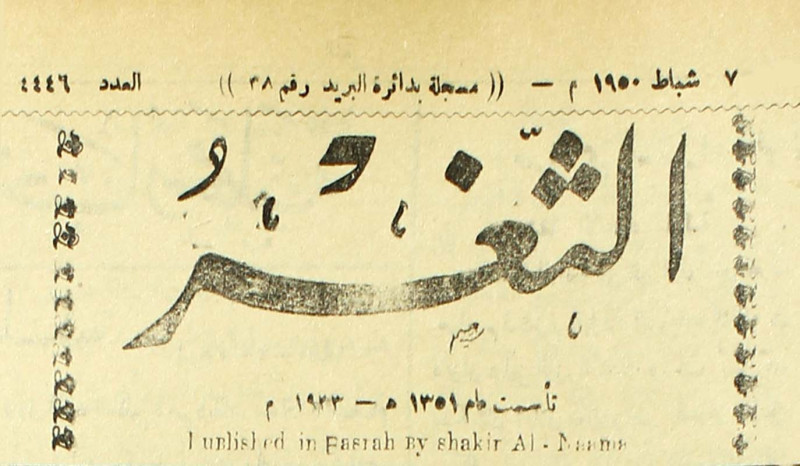 ٧ شباط ١٩٥٠ م — (( مسجلة بدائرة البريد رقم ٣٨ )) العدد ٤٤٤٦
الثّغرُ
تأسست عام ١٣٥١ ه — ١٩٣٣ م
Published in Basrah By shakir Al - Naama